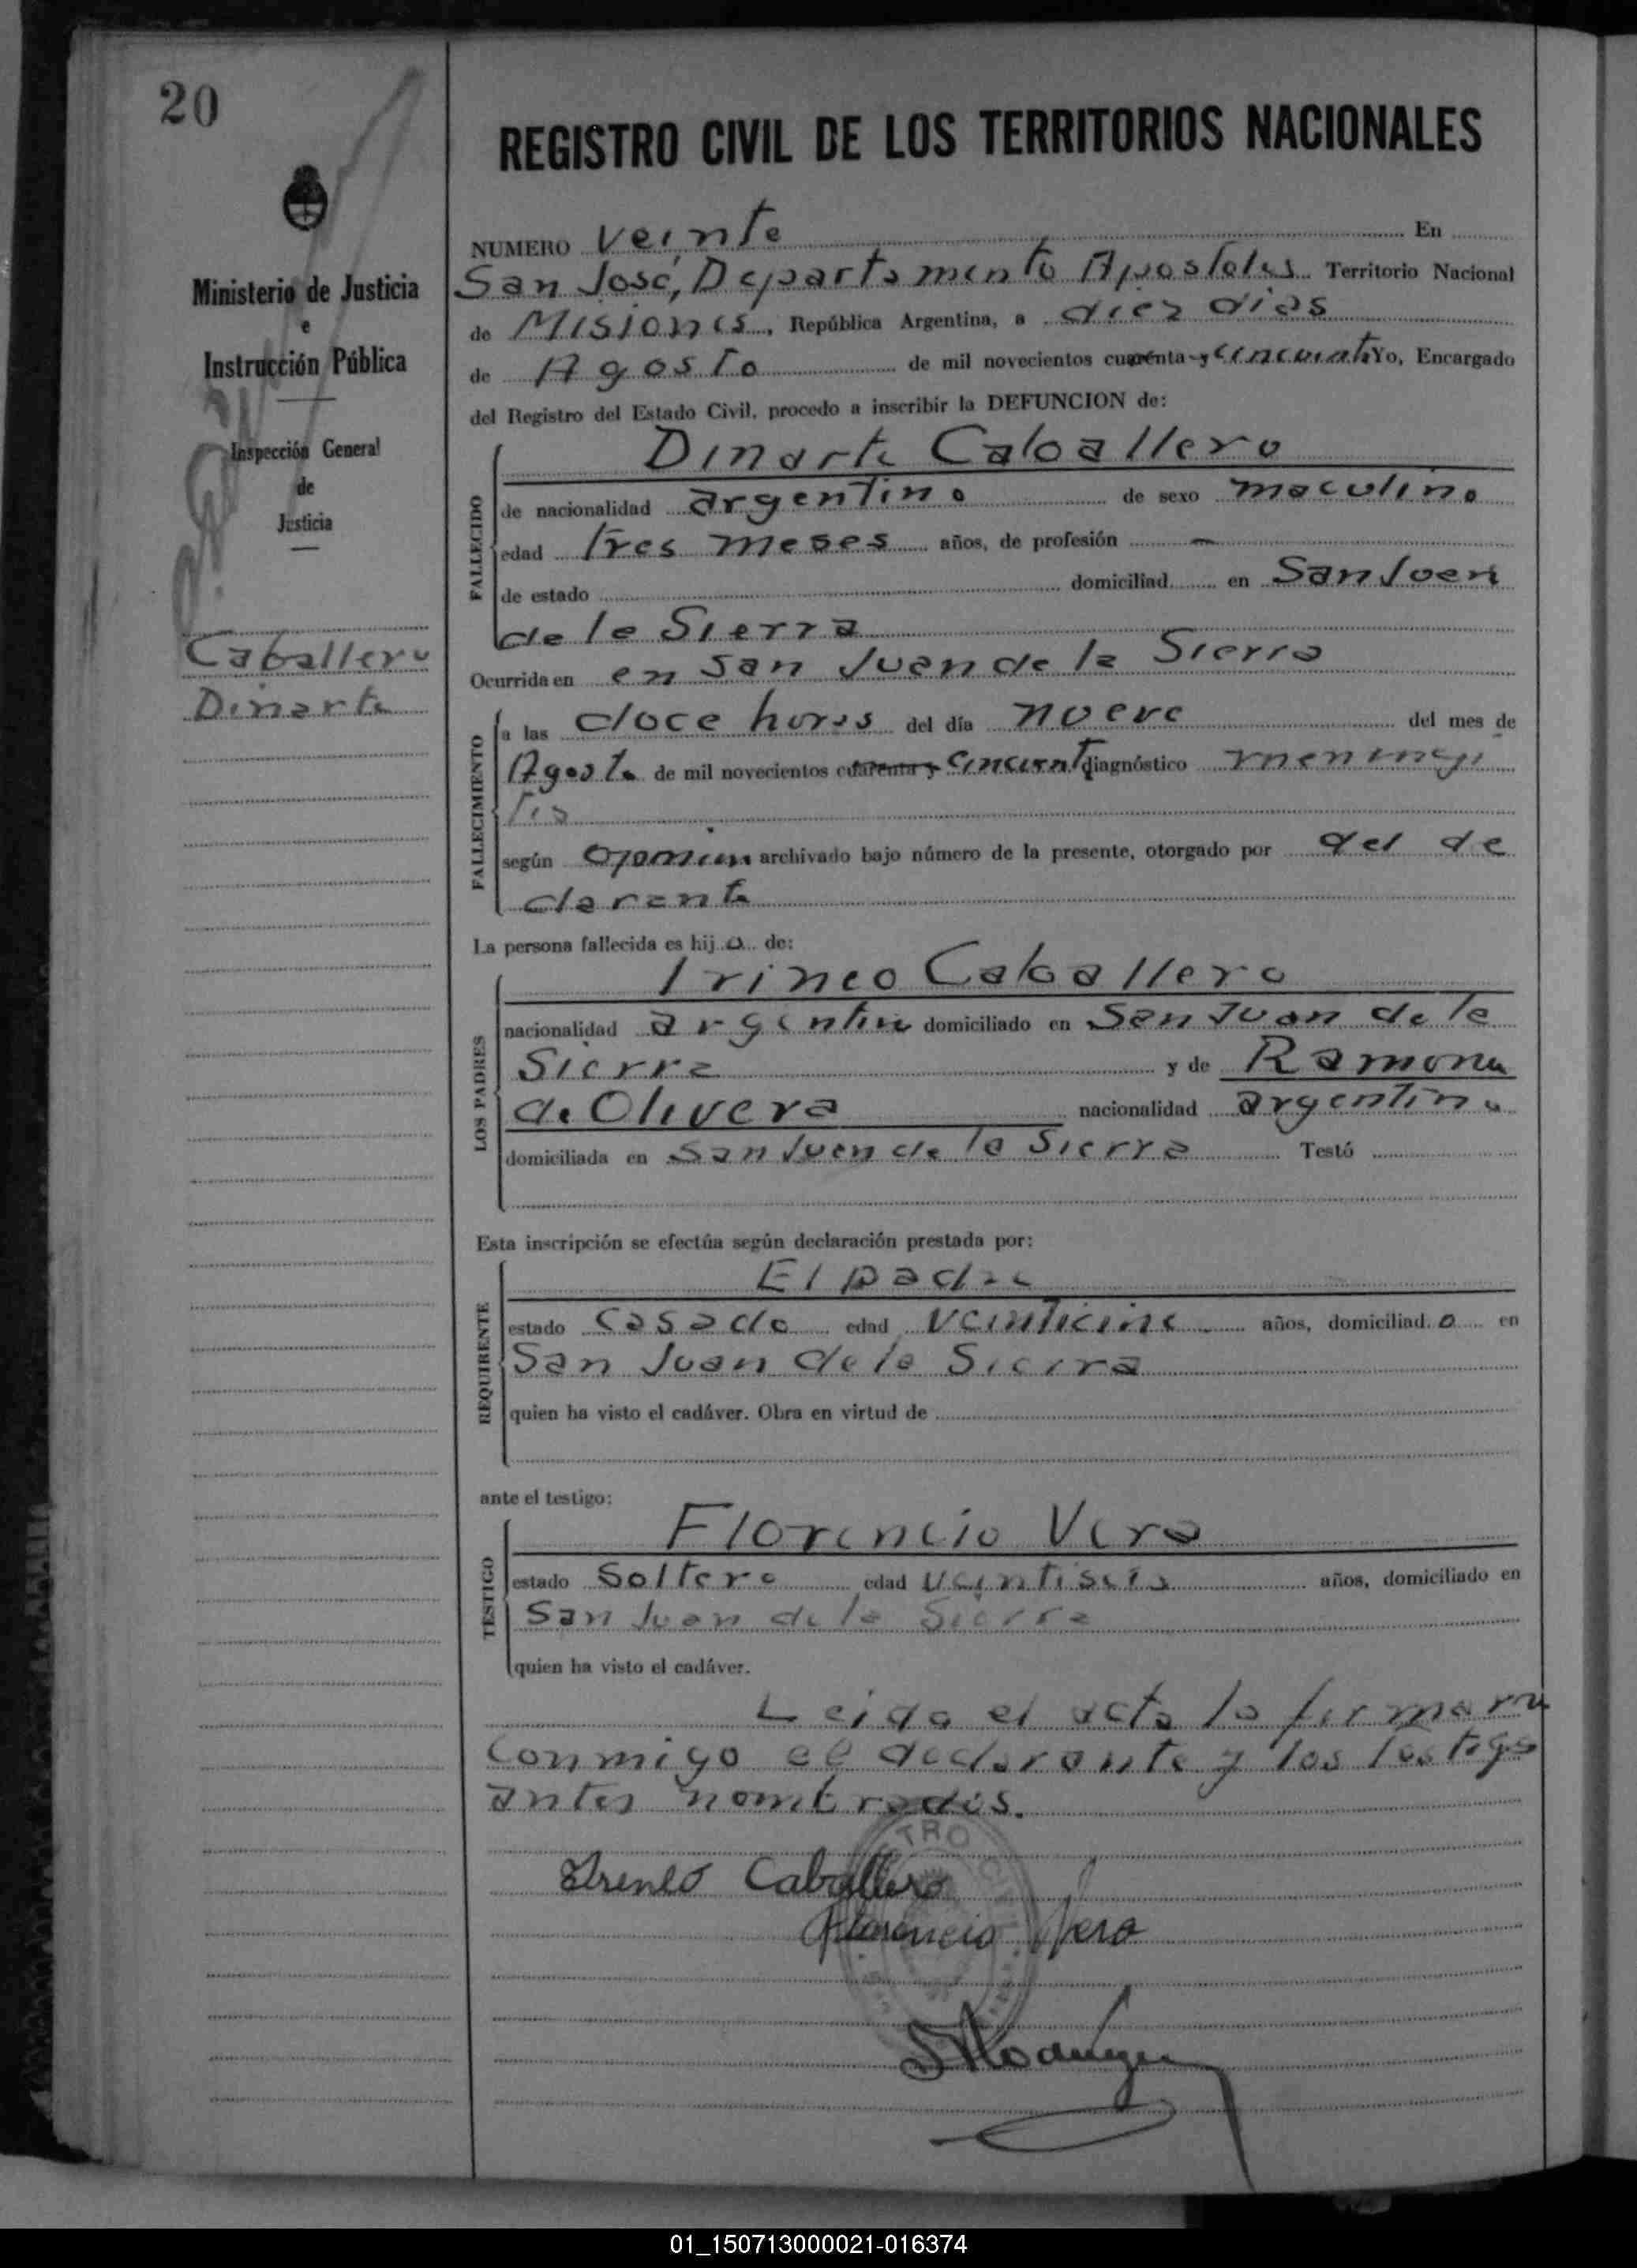 20
Ministerio de Justicia
e
Instrucción Pública
Inspección General
de
Justicia
Caballero
Dinarte
REGISTRO CIVIL DE LOS TERRITORIOS NACIONALES
NUMERO veinte En
San José, Departamento Apostoles Territorio Nacional
de Misiones, República Argentina, a diez dias
de Agosto de mil novecientos cuarenta y cincuenta Yo, Encargado
del Registro del Estado Civil, procedo a inscribir la DEFUNCION de:
Dinarte Caballero
FALLECIDO
de nacionalidad argentino de sexo masculino
edad tres meses años, de profesión —
de estado domiciliad en San Juan
de la Sierra
Ocurrida en en San Juan de la Sierra
FALLECIMIENTO
a las doce horas del día nueve del mes de
Agosto de mil novecientos cuarenta y cincuenta diagnóstico meningi
tis
según archivado bajo número de la presente, otorgado por del de
clarante
La persona fallecida es hijo de:
Irineo Caballero
LOS PADRES
nacionalidad argentino domiciliado en San Juan de la
Sierra y de Ramona
de Olivera nacionalidad argentina
domiciliada en San Juan de la Sierra Testó
Esta inscripción se efectúa según declaración prestada por:
El padre
REQUIRENTE
estado casado edad veinticinc años, domiciliado en
San Juan de la Sierra
quien ha visto el cadáver. Obra en virtud de
ante el testigo:
Florencio Vera
TESTIGO
estado Soltero edad veintiseis años, domiciliado en
San Juan de la Sierra
quien ha visto el cadáver.
Leida el acta la firmaron
conmigo el declarante y los testigos
antes nombrados.
Ireneo Caballero
Florencio Vera
01_150713000021-016374